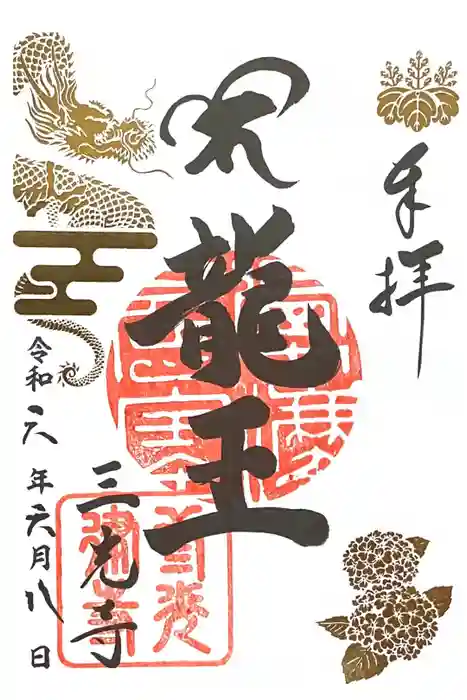 奉拝
八大龍王
三光寺
令和六年六月八日